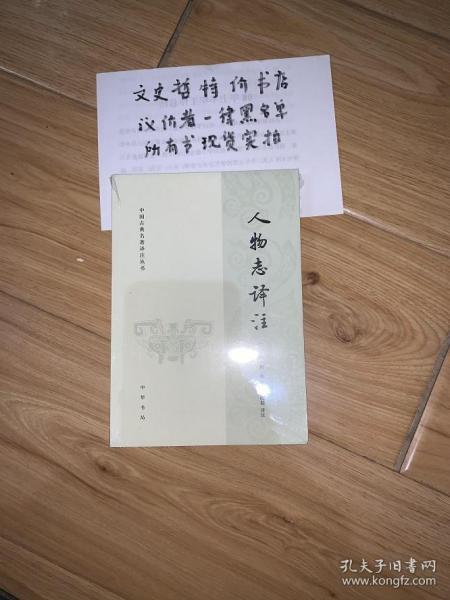 文史哲特价书店
议价者一律黑名单
所有书现货实拍
人物志译注
中国古典名著译注丛书
译注
中华书局
孔夫子旧书网
www.kongfz.com